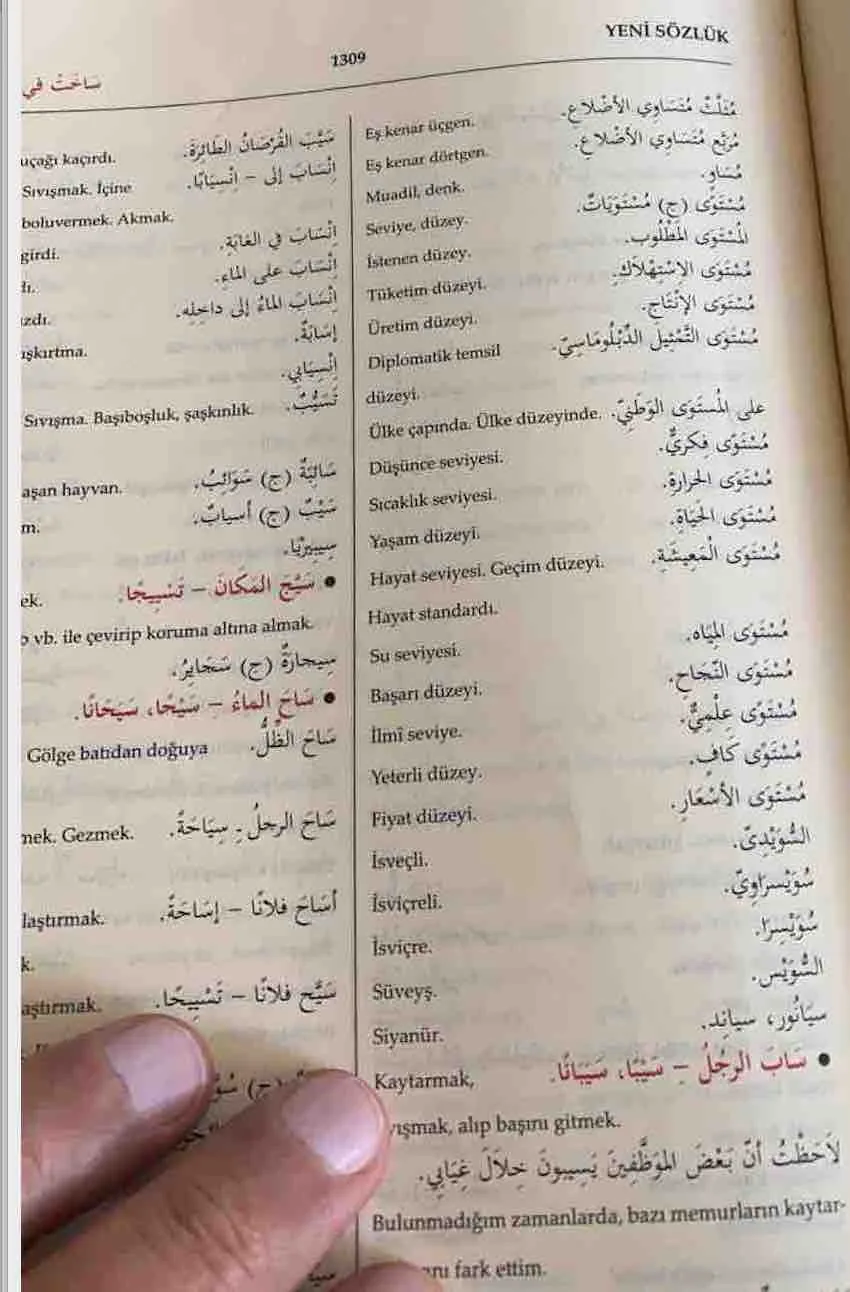 YENİ SÖZLÜK
1309
سَاحَتْ في
مُثَلَّثْ مُتَسَاوِي الأضْلاَعِ. Eş kenar üçgen.
مُرَبَّع مُتَسَاوِي الأضْلاَعِ. Eş kenar dörtgen.
مُسَاوٍ. Muadil, denk.
مُسْتَوًى (ج) مُسْتَوَيَاتٌ. Seviye, düzey.
المُسْتَوَى المَطْلُوب. İstenen düzey.
مُسْتَوَى الاسْتِهْلاَكِ. Tüketim düzeyi.
مُسْتَوَى الإنْتَاجِ. Üretim düzeyi.
مُسْتَوَى التَّمْثِيلِ الدِّبْلُومَاسِيِّ. Diplomatik temsil
düzeyi.
على المُسْتَوَى الوَطَنِيِّ. Ülke çapında. Ülke düzeyinde.
مُسْتَوًى فِكْرِيٌّ. Düşünce seviyesi.
مُسْتَوَى الحَرَارَةِ. Sıcaklık seviyesi.
مُسْتَوَى الحَيَاةِ. Yaşam düzeyi.
مُسْتَوَى الْمَعِيشَةِ. Hayat seviyesi. Geçim düzeyi.
Hayat standardı.
مُسْتَوَى المِيَاهِ. Su seviyesi.
مُسْتَوَى النَّجَاحِ. Başarı düzeyi.
مُسْتَوًى عِلْمِيٌّ. İlmî seviye.
مُسْتَوًى كَافٍ. Yeterli düzey.
مُسْتَوَى الأسْعَارِ. Fiyat düzeyi.
السُّوَيْدِىّ. İsveçli.
سُوَيْسرَاوِيّ. İsviçreli.
سُوَيْسرَا. İsviçre.
السُّوَيْس. Süveyş.
سيَانُور، سياند. Siyanür.
● سَابَ الرجُلُ – سَيْبًا، سَيَبَانًا. Kaytarmak,
ışmak, alıp başını gitmek.
لاَحَظْتُ أنّ بَعْضَ المُوَظَّفِينَ يَسِيبُونَ خِلاَلَ غِيَابِي.
Bulunmadığım zamanlarda, bazı memurların kaytar-
nı fark ettim.
سَيَّبَ القُرْصَانُ الطَّائِرَةَ. uçağı kaçırdı.
اِنْسَابَ إلى – اِنْسِيَابًا. Sıvışmak. İçine
boluvermek. Akmak.
اِنْسَابَ في الغَابَةِ. girdi.
اِنْسَابَ على الماءِ. dı.
اِنْسَابَ المَاءُ إلى داخِلِهِ. zdı.
إسَابَةٌ. şkırtma.
اِنْسِيَابِي.
تَسَيُّبٌ. Sıvışma. Başıboşluk, şaşkınlık.
سَائِبَةٌ (ج) سَوَائِبُ. aşan hayvan.
سَيْبٌ (ج) أسيابٌ. m.
سِيبِيرْيَا.
● سَيَّجَ المَكَانَ – تَسْيِيجًا. ek.
vb. ile çevirip koruma altına almak.
سِيجَارَةٌ (ج) سَجَايِرُ.
● سَاحَ الماءُ – سَيْحًا، سَيَحَانًا.
سَاحَ الظِّلُّ. Gölge batıdan doğuya
سَاحَ الرجلُ - سِيَاحَةً. mek. Gezmek.
أسَاحَ فلاَنًا – إسَاحَةً. laştırmak.
k.
سَيَّح فلاَنًا – تَسْيِيحًا. aştırmak.